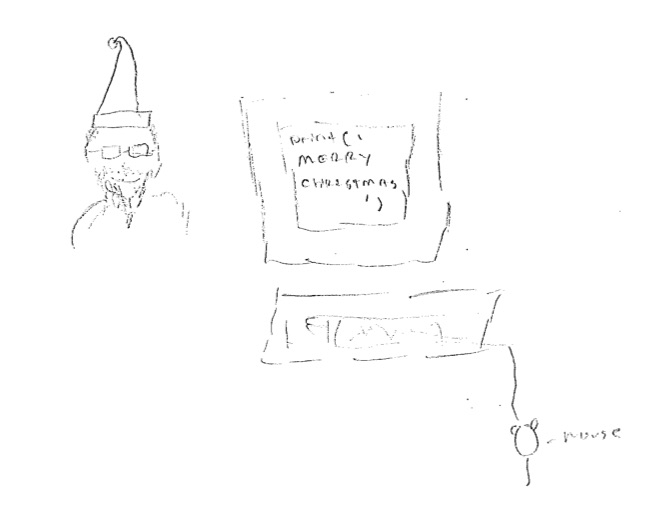 print('
MERRY
CHRISTMAS
')
mouse